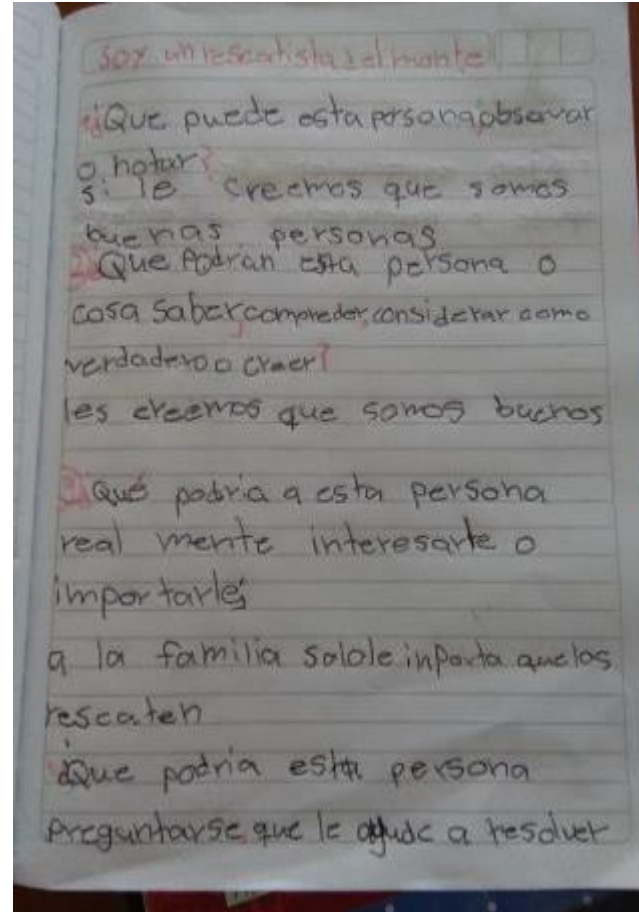 soy un rescatista del monte
1¿Que puede esta persona,observar
o notar?
si le creemos que somos
buenas personas
2¿Que Podran esta persona o
cosa saber,compreder,considerar como
verdadero o creer?
les creemos que somos buenos
3¿Qué podria a esta persona
real mente interesarle o
importarle?
a la familia solole inporta quelos
rescaten
¿Que podria esta persona
preguntarse que le ayude a resolver